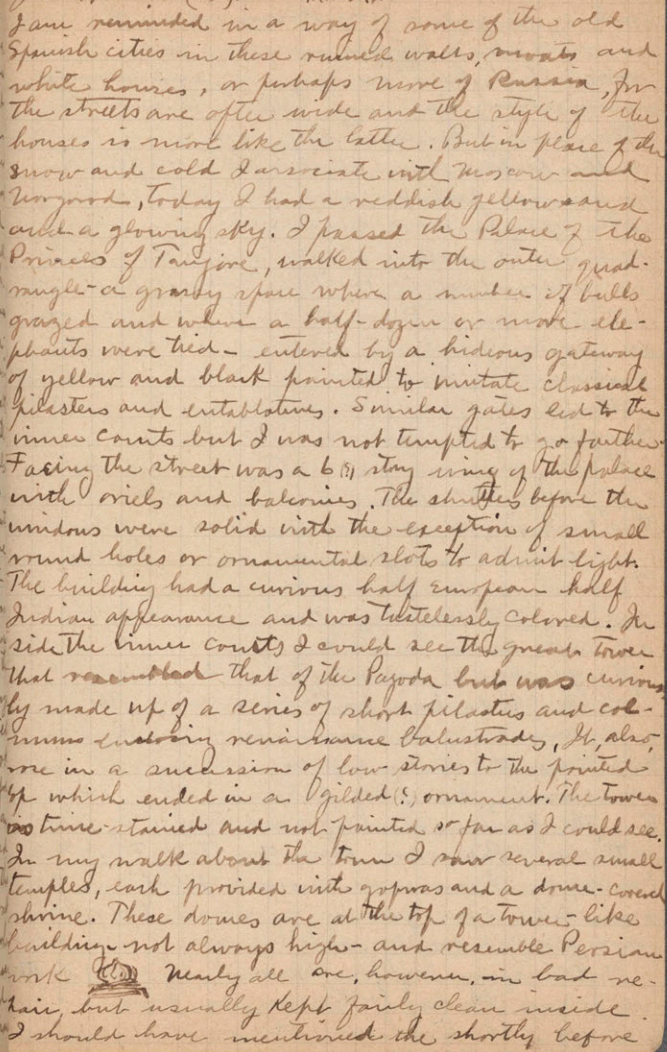 I am reminded in a way of some of the old
Spanish cities in these ruined walls, moats and
white houses, or perhaps more of Russia, for
the streets are often wide and the style of the
houses is more like the latter. But in place of the
snow and cold I associate with Moscow and
Novgorod, today I had a reddish yellow sand
and a glowing sky. I passed the Palace of the
Princes of Tanjore, walked into the outer quad-
rangle - a grassy space where a number of bulls
grazed and where a half-dozen or more ele-
phants were tied - entered by a hideous gateway
of yellow and black painted to imitate classical
pilasters and entablatures. Similar gates led to the
inner courts but I was not tempted to go further.
Facing the street was a 6 (?) story wing of the palace
with oriels and balconies. The shutters before the
windows were solid with the exception of small
round holes or ornamental slots to admit light.
The building had a curious half European half
Indian appearance and was tastelessly colored. In
side the inner courts I could see the great tower
that resembled that of the Pagoda but was curious
ly made up of a series of short pilasters and col-
umns enclosing renaissance balustrades. It, also,
rose in a succession of low stories to the pointed
top which ended in a gilded (?) ornament. The tower
is time-stained and not painted so far as I could see.
In my walk about the town I saw several small
temples, each provided with gopuras and a dome-covered
shrine. These domes are at the top of a tower-like
building - not always high - and resemble Persian
work Nearly all are, however, in bad re-
pair, but usually kept fairly clean inside.
I should have mentioned the shortly before